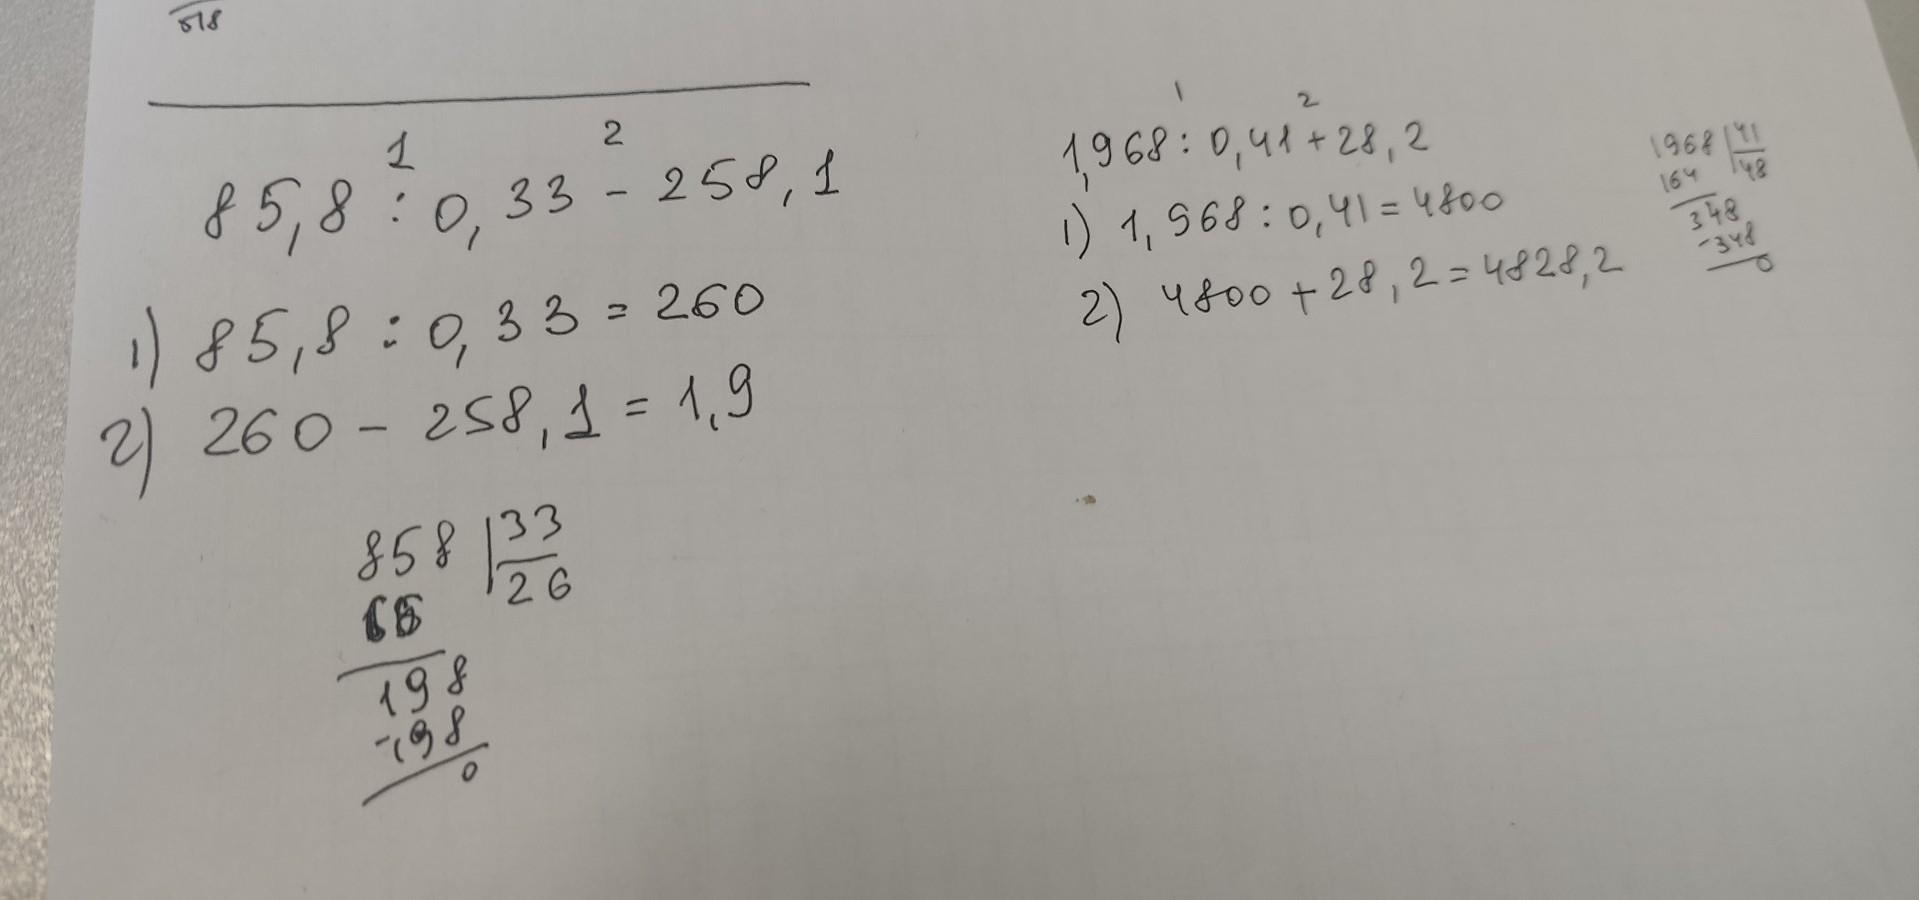 518
1 2
85,8 : 0,33 - 258,1
1) 85,8 : 0,33 = 260
2) 260 - 258,1 = 1,9
858 | 33
66 26
198
-198
0
1 2
1,968 : 0,41 + 28,2
1) 1,968 : 0,41 = 4800
2) 4800 + 28,2 = 4828,2
1968 | 41
164 48
348
-348
0